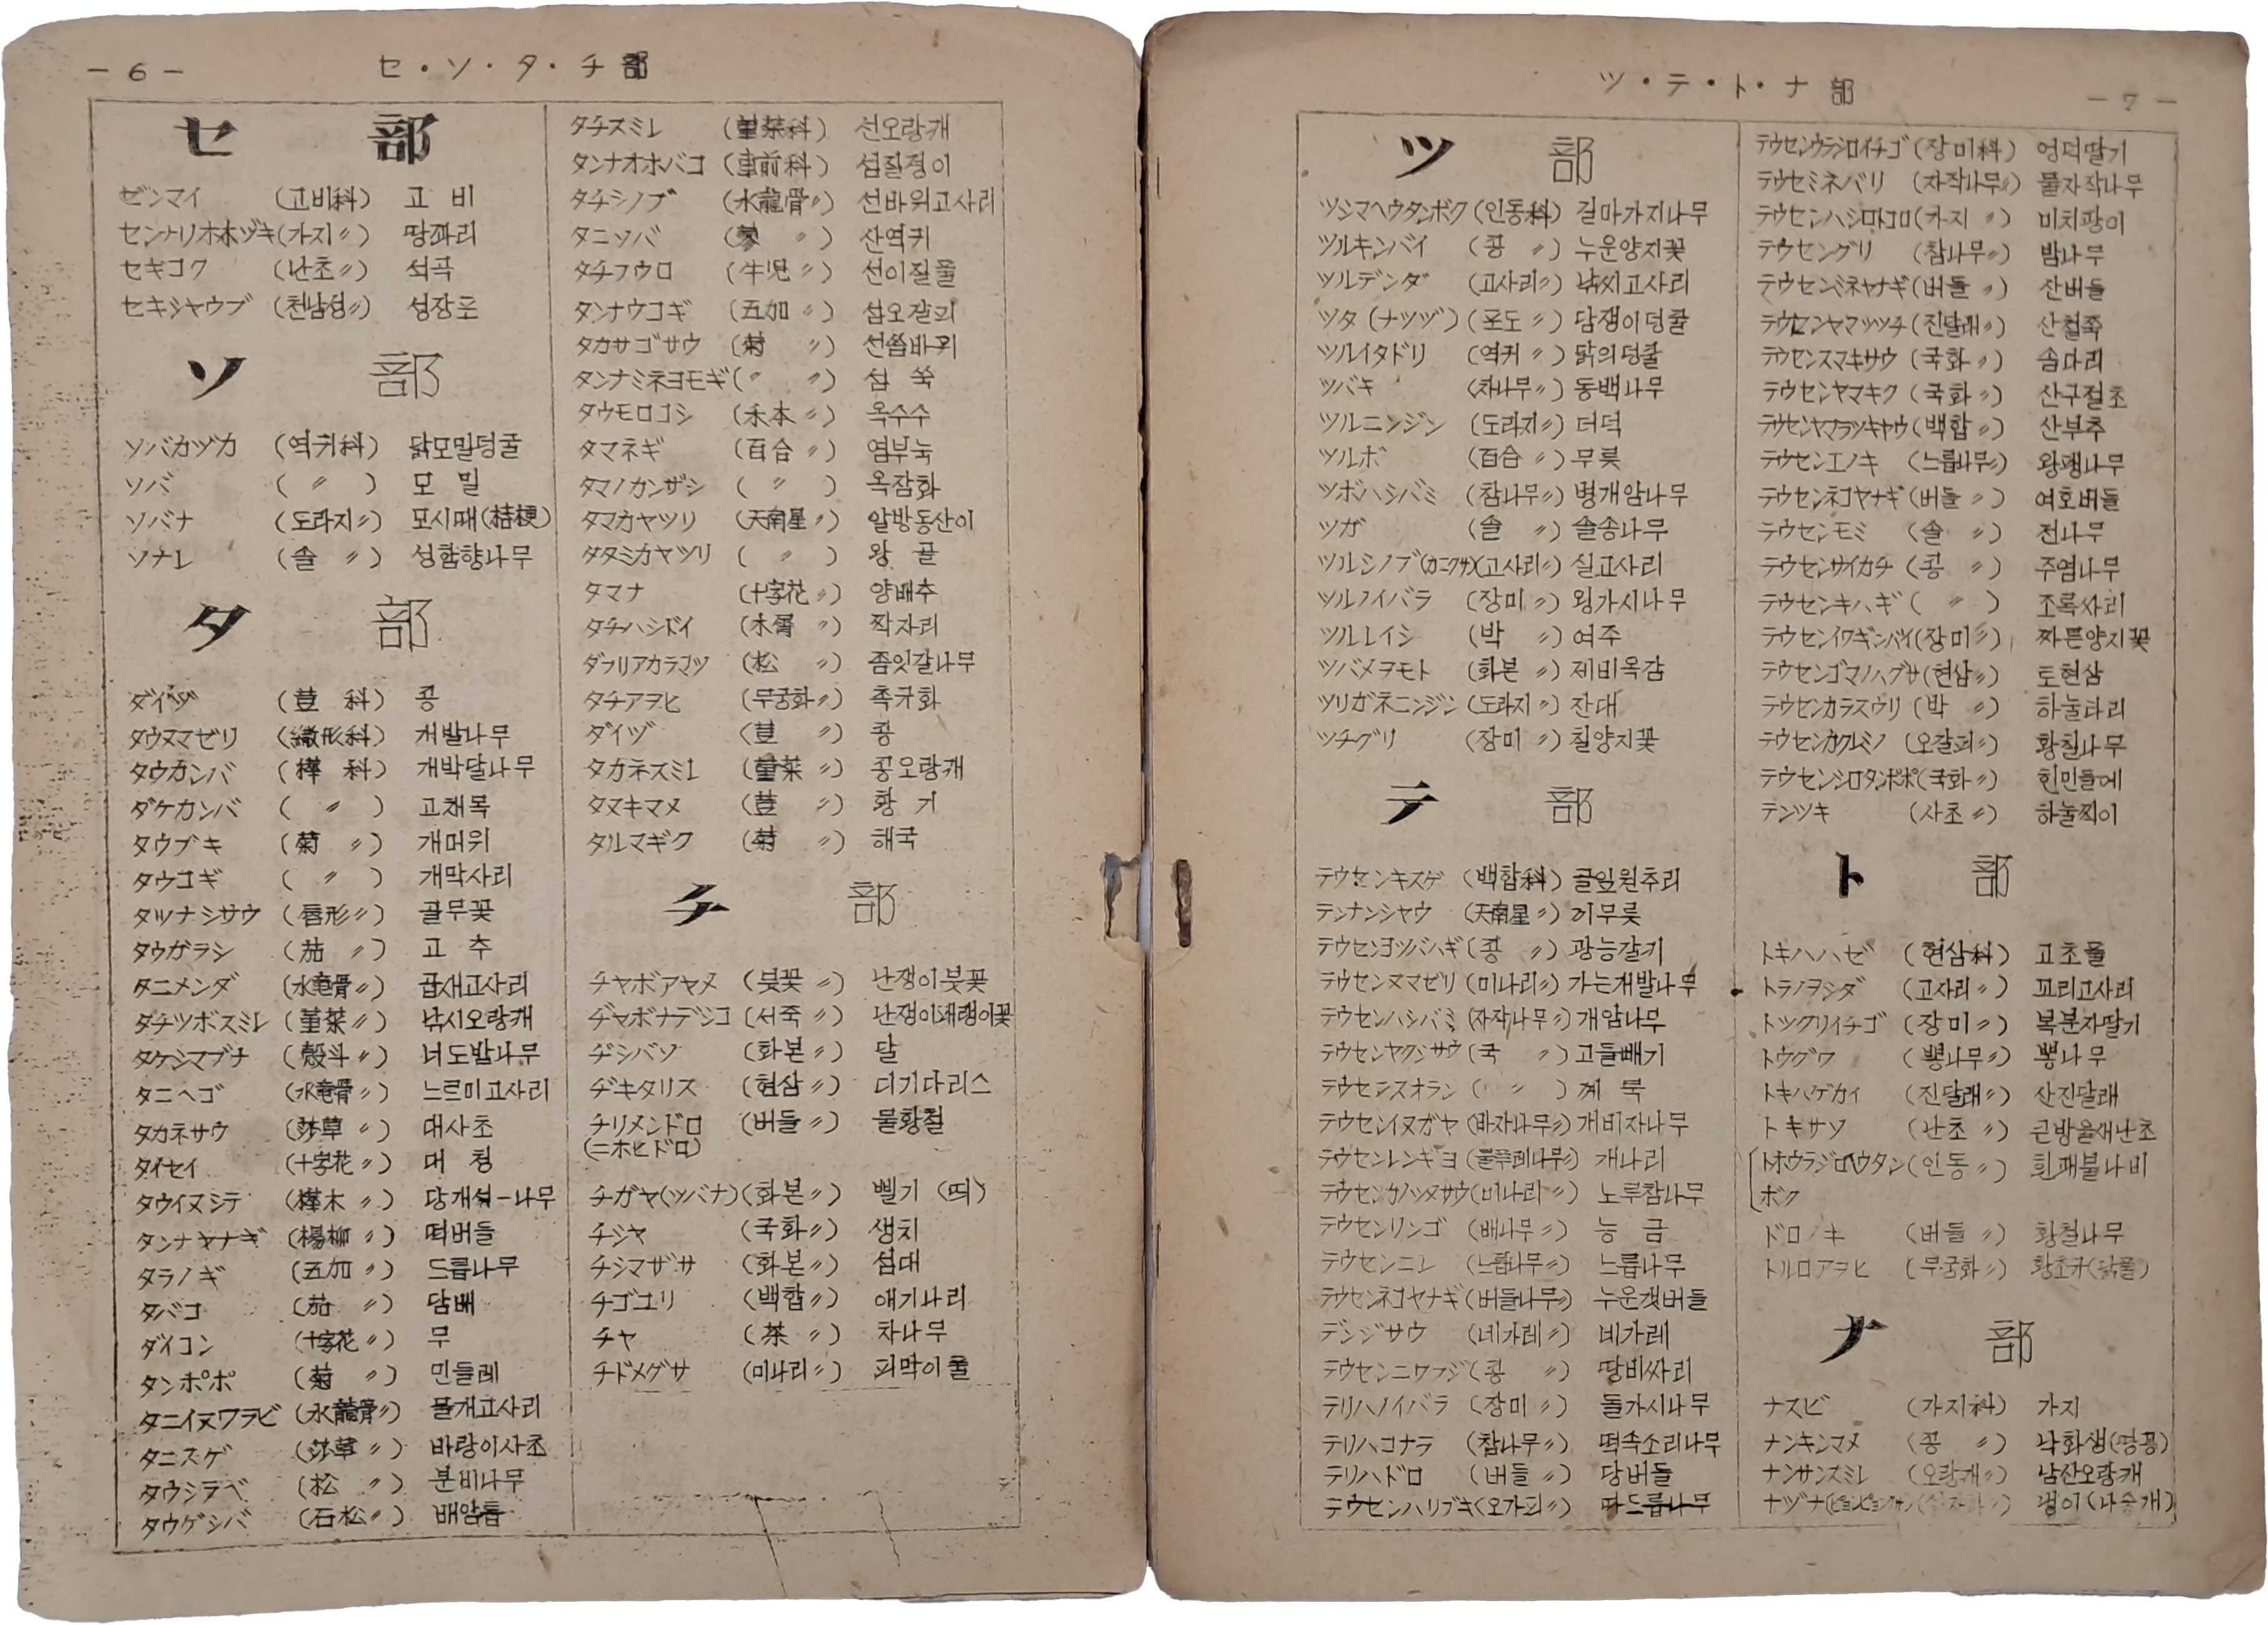 - 6 -
セ・ソ・タ・チ部
セ 部
ゼンマイ (고비科) 고 비
センナリオホヅキ (가지〃) 땅꽈리
セキコク (난초〃) 석곡
セキシャウブ (천남성〃) 성장포
ソ 部
ソバカヅカ (역귀科) 닭모밀덩굴
ソバ ( 〃 ) 모 밀
ソバナ (도라지〃) 모시때(桔梗)
ソナレ (솔 〃) 섬향나무
タ 部
ダイヅ (荳 科) 콩
タウヌマゼリ (繖形科) 개발나무
タウカンバ (樺 科) 개박달나무
ダケカンバ ( 〃 ) 고채목
タウブキ (菊 〃) 개머위
タウコギ ( 〃 ) 개막사리
タツナシサウ (唇形〃) 골무꽃
タウガラシ (茄 〃) 고 추
タニメンダ (水竜骨〃) 곱새고사리
タチツボスミレ (菫菜〃) 낚시오랑캐
タケシマブナ (殻斗〃) 너도밤나무
タニヘゴ (水竜骨〃) 느르미고사리
タカネサウ (莎草 〃) 대사초
タイセイ (十字花〃) 대 청
タウイヌシテ (樺木 〃) 당개석-나무
タンナヤナギ (楊柳 〃) 떡버들
タラノギ (五加 〃) 드릅나무
タバコ (茄 〃) 담배
ダイコン (十字花〃) 무
タンポポ (菊 〃) 민들레
タニイヌワラビ (水龍骨〃) 물개고사리
タニスゲ (莎草 〃) 바랑이사초
タウシラベ (松 〃) 분비나무
タウゲシバ (石松〃) 배암톱
タチスミレ (菫菜科) 선오랑캐
タンナオホバコ (車前科) 섬질정이
タチシノブ (水龍骨〃) 선바위고사리
タニソバ (蓼 〃) 산역귀
タチフウロ (牛児〃) 선이질풀
タンナウコギ (五加 〃) 섬오갈피
タカサゴサウ (菊 〃) 선씀바귀
タンナミネヨモギ (〃 〃) 섬 쑥
タウモロコシ (禾本 〃) 옥수수
タマネギ (百合 〃) 염부눅
タマノカンザシ ( 〃 ) 옥잠화
タマカヤツリ (天南星〃) 알방동산이
タタミカヤツリ ( 〃 ) 왕 골
タマナ (十字花〃) 양배추
タチハシドイ (木犀 〃) 짝자리
ダフリアカラマツ (松 〃) 좀잇갈나무
タチアヲヒ (무궁화〃) 촉규화
ダイヅ (荳 〃) 콩
タカネスミレ (菫菜 〃) 콩오랑캐
タヌキマメ (荳 〃) 황 기
タルマギク (菊 〃) 해국
チ 部
チヤボアヤメ (붓꽃 〃) 난쟁이붓꽃
ヂャボナデシコ (석죽 〃) 난쟁이패랭이꽃
ヂシバソ (화본〃) 달
ヂキタリス (현삼〃) 디기다리스
チリメンドロ (버들〃) 물황철
(ニホヒドロ)
チガヤ(ツバナ) (화본〃) 삘기 (띠)
チジヤ (국화〃) 생치
チシマザサ (화본〃) 섬대
チゴユリ (백합〃) 애기나리
チヤ (茶 〃) 차나무
チドメグサ (미나리〃) 피막이풀
ツ・テ・ト・ナ 部
- 7 -
ツ 部
ツシマヘウタンボク (인동科) 길마가지나무
ツルキンバイ (콩 〃) 누운양지꽃
ツルデンダ (고사리〃) 낚시고사리
ツタ (ナツヅ) (포도 〃) 담쟁이덩쿨
ツルイタドリ (역귀 〃) 닭의덩쿨
ツバキ (차나무〃) 동백나무
ツルニンジン (도라지〃) 더덕
ツルボ (百合 〃) 무릇
ツボハシバミ (참나무〃) 병개암나무
ツガ (솔 〃) 솔송나무
ツルシノブ(カニクサ) (고사리〃) 실고사리
ツルノイバラ (장미 〃) 왕가시나무
ツルレイシ (박 〃) 여주
ツバメヲモト (화본 〃) 제비옥감
ツリガネニンジン (도라지〃) 잔대
ツチグリ (장미 〃) 칠양지꽃
テ 部
テウセンキスゲ (백합科) 골잎원추리
テンナンシャウ (天南星〃) 끼무릇
テウセンヨツバハギ (콩 〃) 광능갈키
テウセンヌマゼリ (미나리〃) 가는개발나무
テウセンハシバミ (자작나무〃) 개암나무
テウセンヤクシサウ (국 〃) 고들빼기
テウセンスオラン ( 〃 ) 께 묵
テウセンイヌガヤ (바자나무〃) 개비자나무
テウセンレンギヨ (물푸레나무〃) 개나리
テウセンカノツメサウ (미나리〃) 노루참나무
テウセンリンゴ (배나무〃) 능 금
テウセンニレ (느릅나무〃) 느릅나무
テウセンネコヤナギ (버들나무〃) 누운갯버들
デンジサウ (네가레〃) 네가레
テウセンニワフジ (콩 〃) 땅비싸리
テリハノイバラ (장미 〃) 돌가시나무
テリハコナラ (참나무〃) 떡속소리나무
テリハドロ (버들 〃) 당버들
テウセンハリブキ (오가피〃) 따드릅나무
テウセンウラジロイチゴ (장미科) 멍덕딸기
テウセミネバリ (자작나무〃) 물자작나무
テウセンハシリドコロ (가지 〃) 미치광이
テウセングリ (참나무〃) 밤나무
テウセンミネヤナギ (버들 〃) 산버들
テウセンヤマツツチ (진달래〃) 산철쭉
テウセンスマキサウ (국화 〃) 솜다리
テウセンヤマキク (국화 〃) 산구절초
テウセンヤマラツキヤウ (백합 〃) 산부추
テウセンエノキ (느릅나무〃) 왕팽나무
テウセンネコヤナギ (버들 〃) 여호버들
テウセンモミ (솔 〃) 전나무
テウセンサイカチ (콩 〃) 주염나무
テウセンキハギ ( 〃 ) 조록싸리
テウセンイワギンバイ (장미〃) 짜른양지꽃
テウセンゴマノハグサ (현삼〃) 토현삼
テウセンカラスウリ (박 〃) 하눌타리
テウセンカクルミノ (오갈피〃) 황칠나무
テウセンシロタンポポ (국화〃) 힌민들에
テンツキ (사초 〃) 하눌찌이
ト 部
トキハハゼ (현삼科) 고초풀
トラノヲシダ (고사리〃) 꼬리고사리
トックリイチゴ (장미〃) 복분자딸기
トウグワ (뽕나무〃) 뽕나무
トキハゲカイ (진달래〃) 산진달래
トキサソ (난초 〃) 큰방울새난초
トホウラジロヘウタン (인동〃) 힌괘불나비
ボク
ドロノキ (버들 〃) 황철나무
トルロアヲヒ (무궁화〃) 황초규(닭풀)
ナ 部
ナスビ (가지科) 가지
ナンキンマメ (콩 〃) 낙화생(땅콩)
ナンサンスミレ (오랑캐〃) 남산오랑캐
ナヅナ 냉이(나숭개)